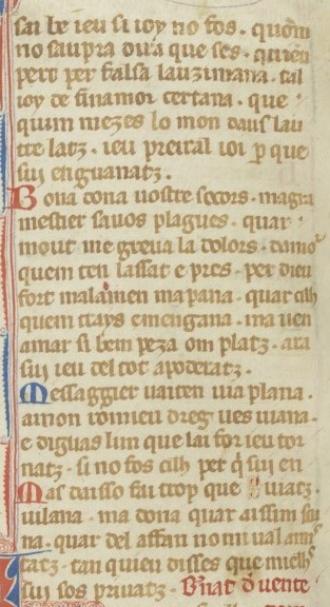 sai be ieu si ioy no fos. quom
no saupra dir a que ses. quieu
pert per falsa lauzimana. tal
ioy de finamor certana. que
quim mezes lo mon daus lau
tre latz. ieu preiral ioi p que
sui enguanatz.
Bona dona uostre socors. magra
mestier sauos plagues. quar
mout me greua la dolors. damor
quem ten lassat e pres. per dieu
fort malamen mapana. quar cilh
quem trays emengana. ma uen
amar si bem peza om platz. ara
sui ieu del tot apoderatz.
Messaggier uai ten uia plana.
amon romieu dreg ues uiana.
e diguas lun que lai for ieu tor
natz. si no fos cilh per q sui en
Mas daisso fai trop que uiatz.
iulana. ma dona quar aissim sa
na. quar del affan no mi ual amis
tatz. tan quieu disses que mielhs
sui sos priuatz. Bnat de uente